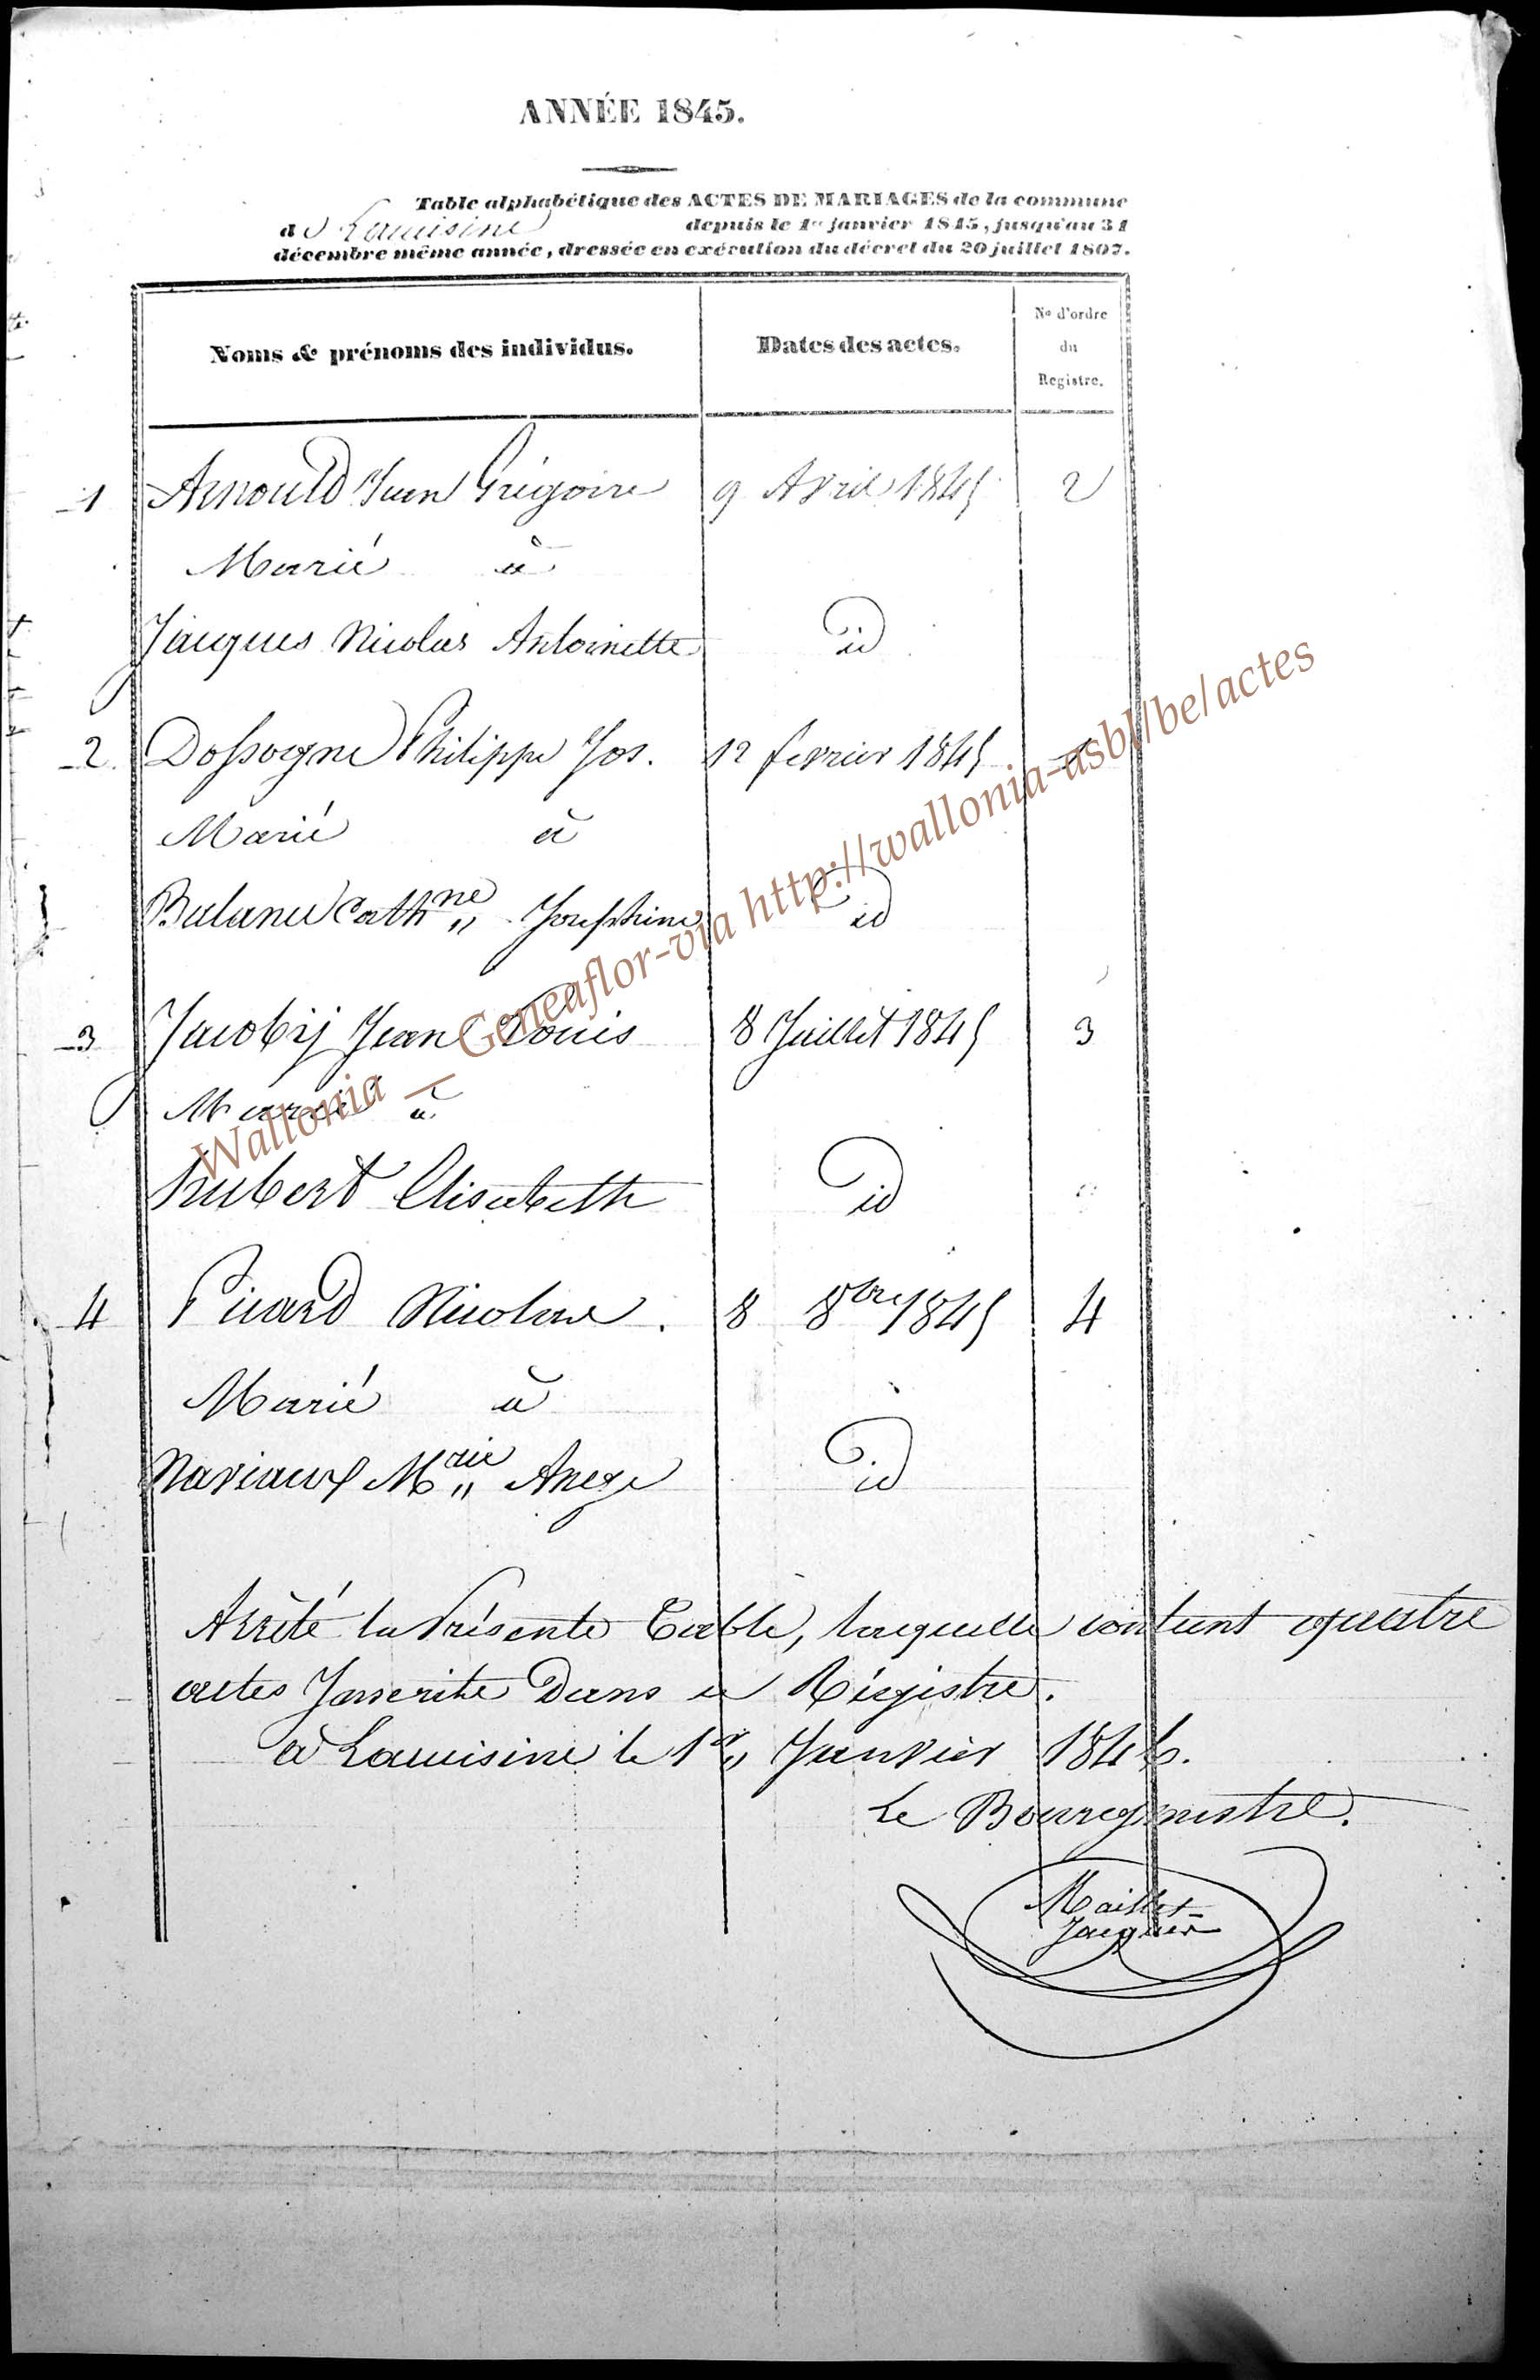 ANNÉE 1845.
Table alphabétique des ACTES DE MARIAGES de la commune
d Lacuisine depuis le 1er janvier 1845, jusqu'au 31
décembre même année, dressée en exécution du décret du 20 juillet 1807.
Noms & prénoms des individus. Dates des actes. No d'ordre du Registre.
1 Arnould Jean Grégoire 9 Avril 1845 2
Marié à
Jacques Nicolas Antoinette id
2 Dossogne Philippe Jos. 12 fevrier 1845 1
Marié à
Cathne Josephine id
3 Jacoby Jean Louis 8 Juillet 1845 3
Marié à
hubert Elisabeth id
4 Picard Nicolas. 8 8bre 1845 4
Marié à
Naviaux Mrie Ange id
Arrêté la Présente Table, laquelle contient quatre
actes Jnscrite Dans ce Régistre.
à Lacuisine le 1er Janvier 1846.
Le Bourgmestre.
Maillet
Jacquier
Wallonia – Geneaflor-via http://wallonia-asbl/be/actes